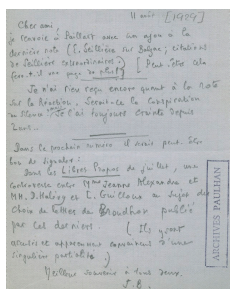 11 août [1929]
Cher ami
je renvoie à Paulhan avec un ajout à la
dernière note (E. Seillière sur Balzac ; citations
de Seillière extraordinaires ;) [Peut-être cela
fera-t-il une page de plus ?]
Je n'ai rien reçu encore quant à la note
sur la
Serait-ce la conspiration
du silence ? Je l'ai toujours crainte depuis
Dans le prochain numéro il serait peut-être
bon de signaler :
Dans les Libres Propos de juillet, une
controverse entre Mme Jeanne Alexandre et
MM. D. Halévy et L. Guilloux au sujet du
Choix de lettres de Proudhon publié
par ces derniers (Ils y sont
accusés et apparemment convaincus d'une
singulière partialité.)
Meilleurs souvenirs à tous deux.
J. B.
ARCHIVES PAULHAN